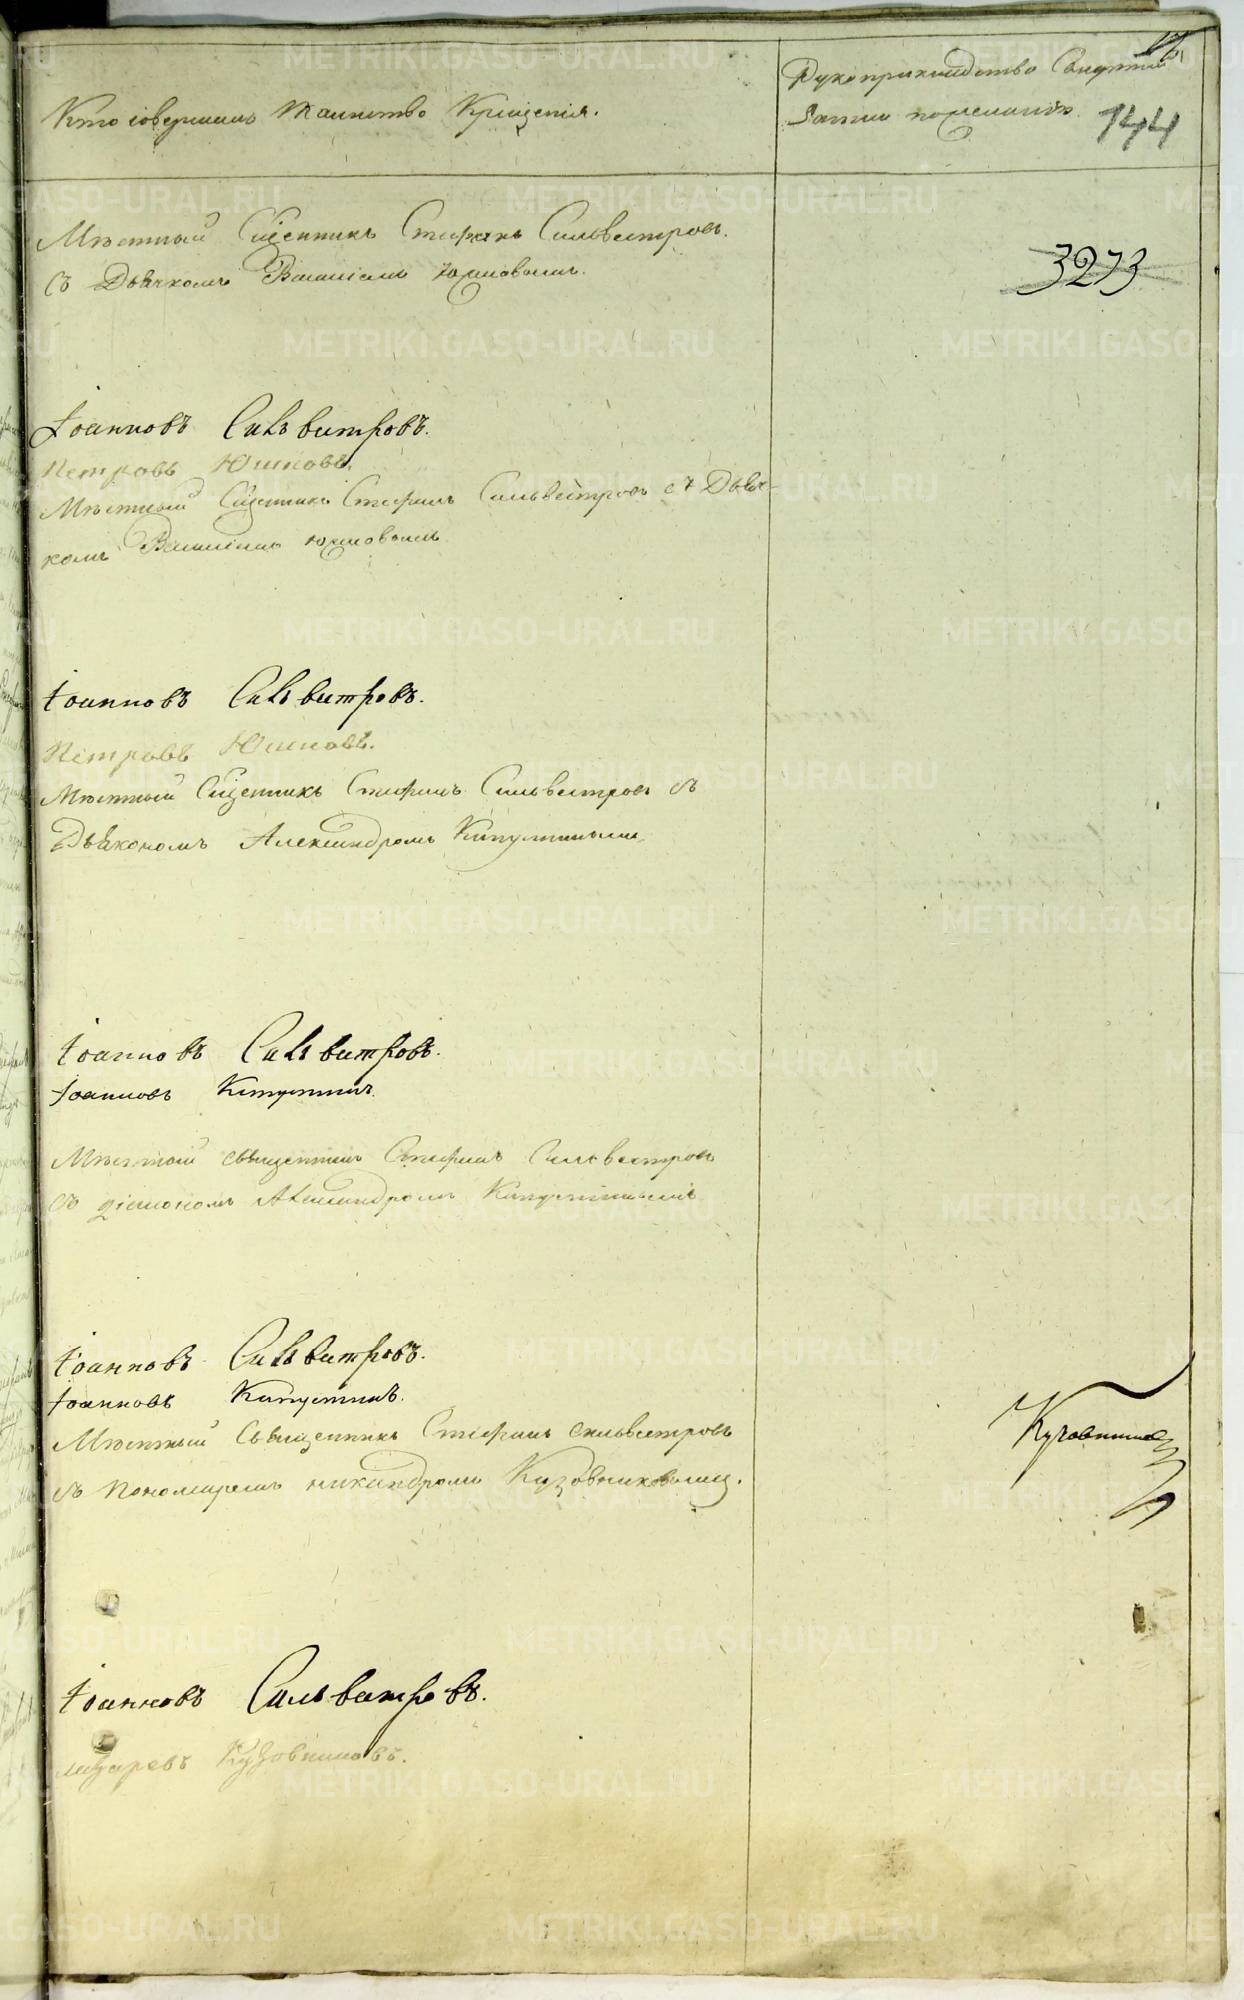 Кто совершалъ таинство Крещенія.
Рукоприкладство
144
Мѣстный Сщенникъ Стефанъ Сильвестровъ.
съ Дьячкомъ Василіемъ Юшковымъ.
3273
Іоанновъ Сильвестровъ.
Петровъ Юшковъ.
Мѣстный Сщенникъ Стефанъ Сильвестровъ съ Дьяч-
комъ Василіемъ Юшковымъ
Іоанновъ Сильвестровъ.
Петровъ Юшковъ.
Мѣстный Сщенникъ Стефанъ Сильвестровъ съ
Дьякономъ Александромъ Капустинымъ
Іоанновъ Сильвестровъ.
Іоанновъ Капустинъ.
Мѣстный священникъ Стефанъ Сильвестровъ
съ діакономъ Александромъ Капустинымъ
Іоанновъ Сильвестровъ.
Іоанновъ Капустинъ.
Мѣстный Священникъ Стефанъ Сильвестровъ
съ Пономаремъ Никандромъ Кузовниковымъ.
Іоанновъ Сильвестровъ.
Лазаревъ Кузовниковъ.
METRIKI.GASO-URAL.RU